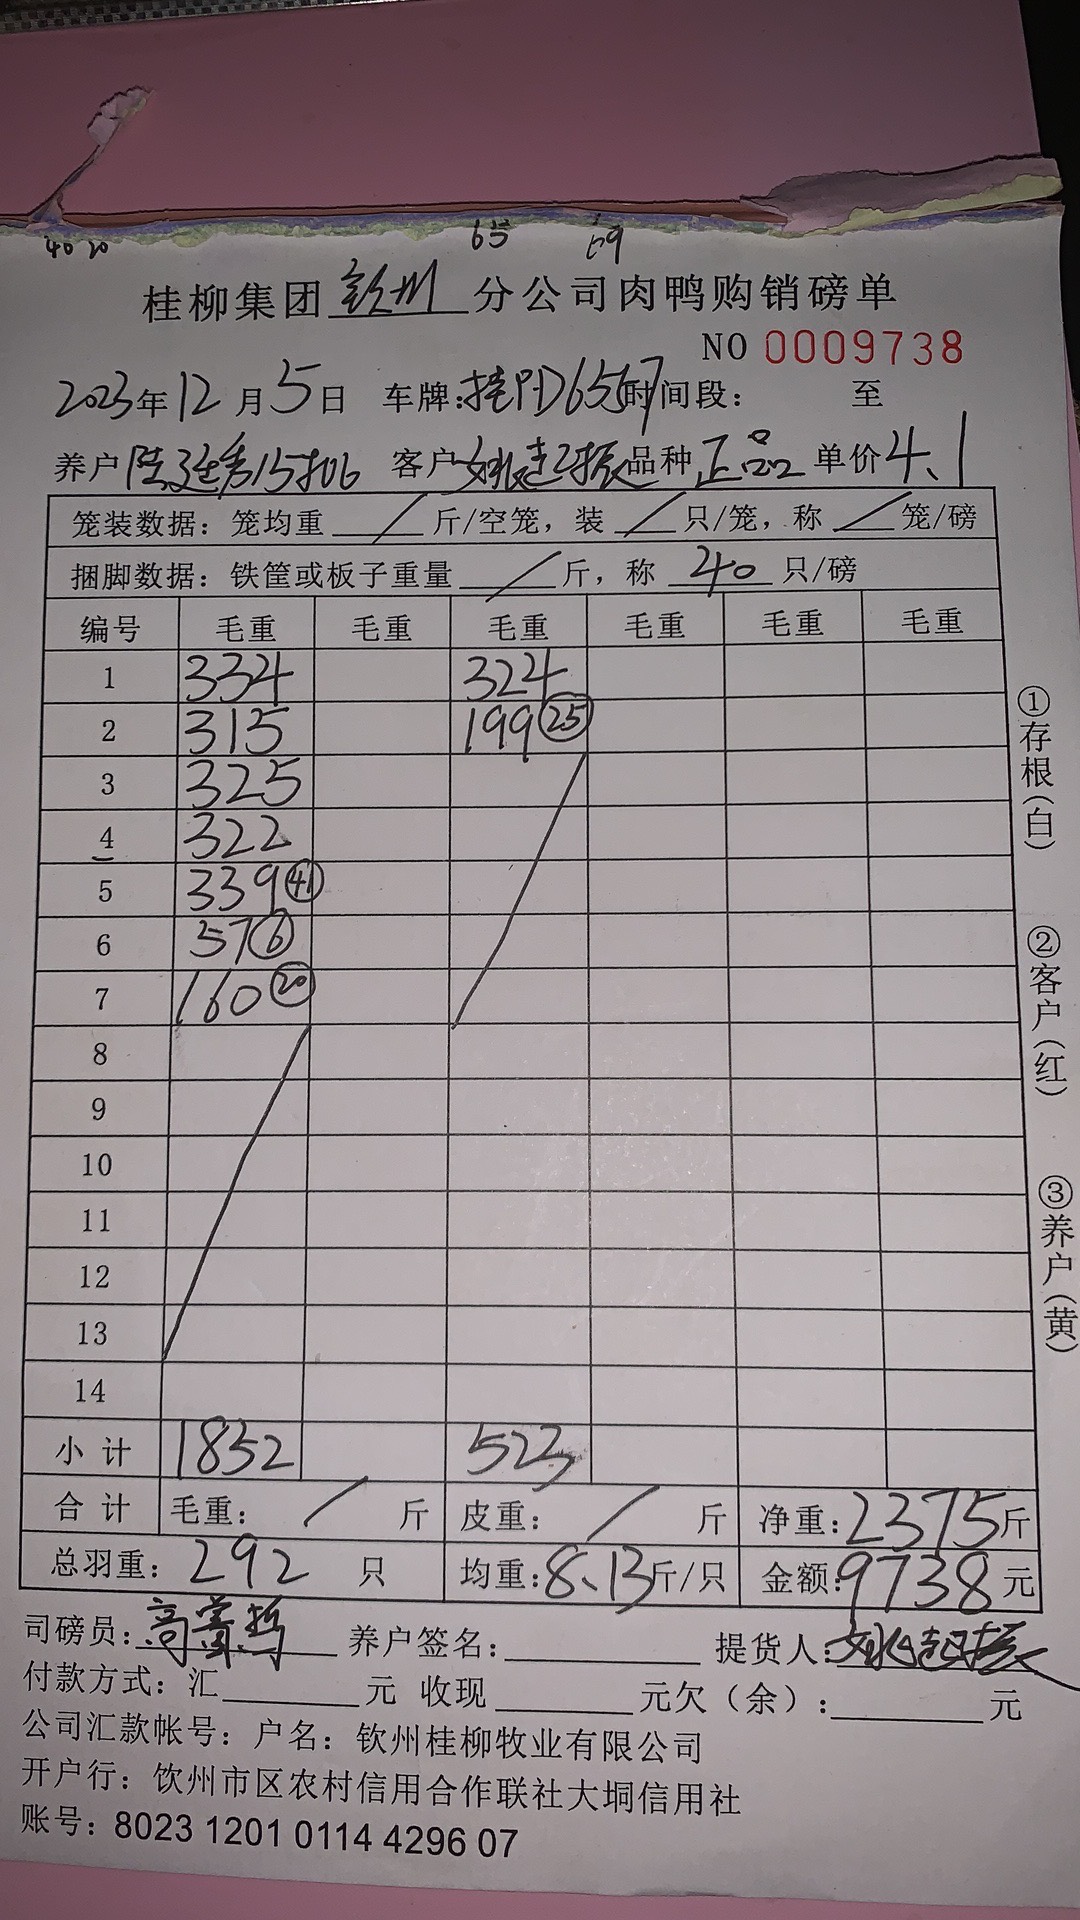 40 20 65 69
桂柳集团钦州分公司肉鸭购销磅单
NO 0009738
2023年12月5日 车牌:桂PD6567时间段: 至
养户陆廷秀15批 客户姚起振品种正品单价4.1
笼装数据:笼均重 / 斤/空笼,装 / 只/笼,称 / 笼/磅
捆脚数据:铁筐或板子重量 / 斤,称 40 只/磅
编号 毛重 毛重 毛重 毛重 毛重 毛重
1 334 324
2 315 199 25
3 325
4 322
5 339 41
6 57 6
7 160 20
8
9
10
11
12
13
14
小计 1852 523
合计 毛重: / 斤 皮重: / 斤 净重:2375斤
总羽重:292 只 均重:8.13斤/只 金额:9738元
司磅员: 养户签名: 提货人:姚起振
付款方式:汇 元 收现 元欠(余): 元
公司汇款帐号:户名:钦州桂柳牧业有限公司
开户行:钦州市区农村信用合作联社大垌信用社
账号:8023 1201 0114 4296 07
①存根(白)
②客户(红)
③养户(黄)